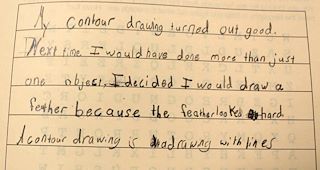 My contour drawing turned out good.
Next time I would have done more than just
one object. I decided I would draw a
fether because the feather looked hard
A contour drawing is a drawing with lines